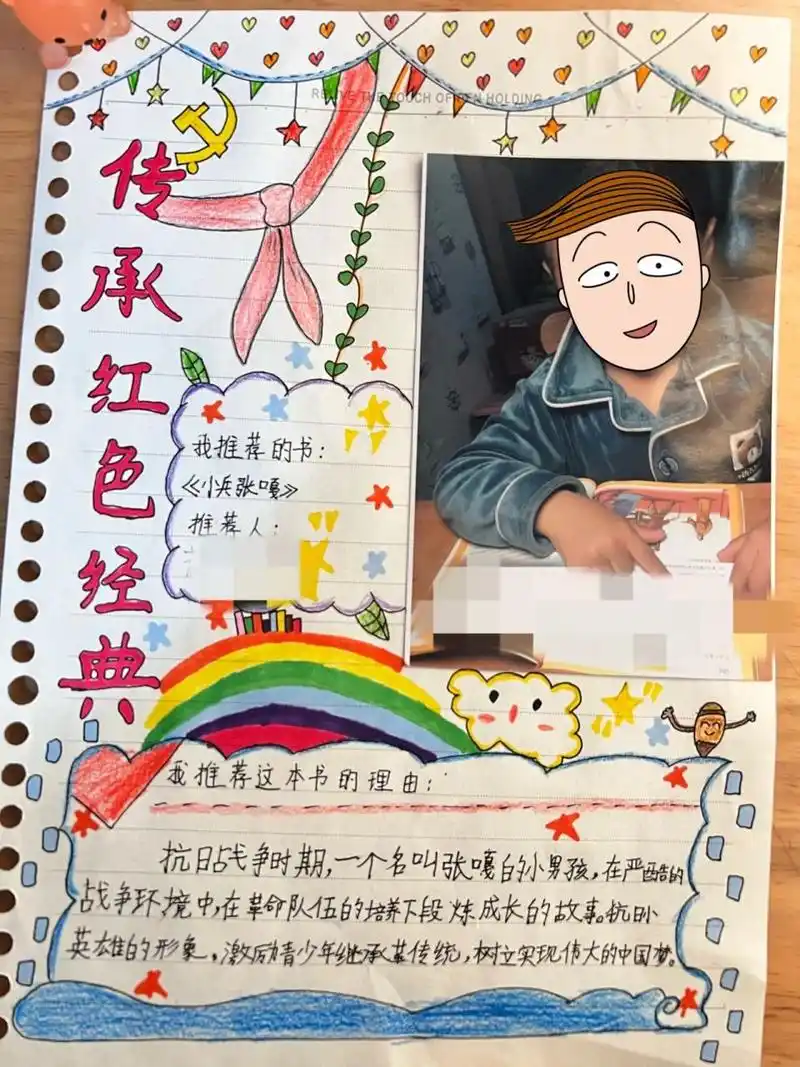 REVIVE THE TOUCH OF PEN HOLDING
传承红色经典
我推荐的书:
《小兵张嘎》
推荐人:
我推荐这本书的理由:
抗日战争时期,一个名叫张嘎的小男孩,在严酷的
战争环境中,在革命队伍的培养下段炼成长的故事。抗日小
英雄的形象,激励青少年继承革传统,树立实现伟大的中国梦。